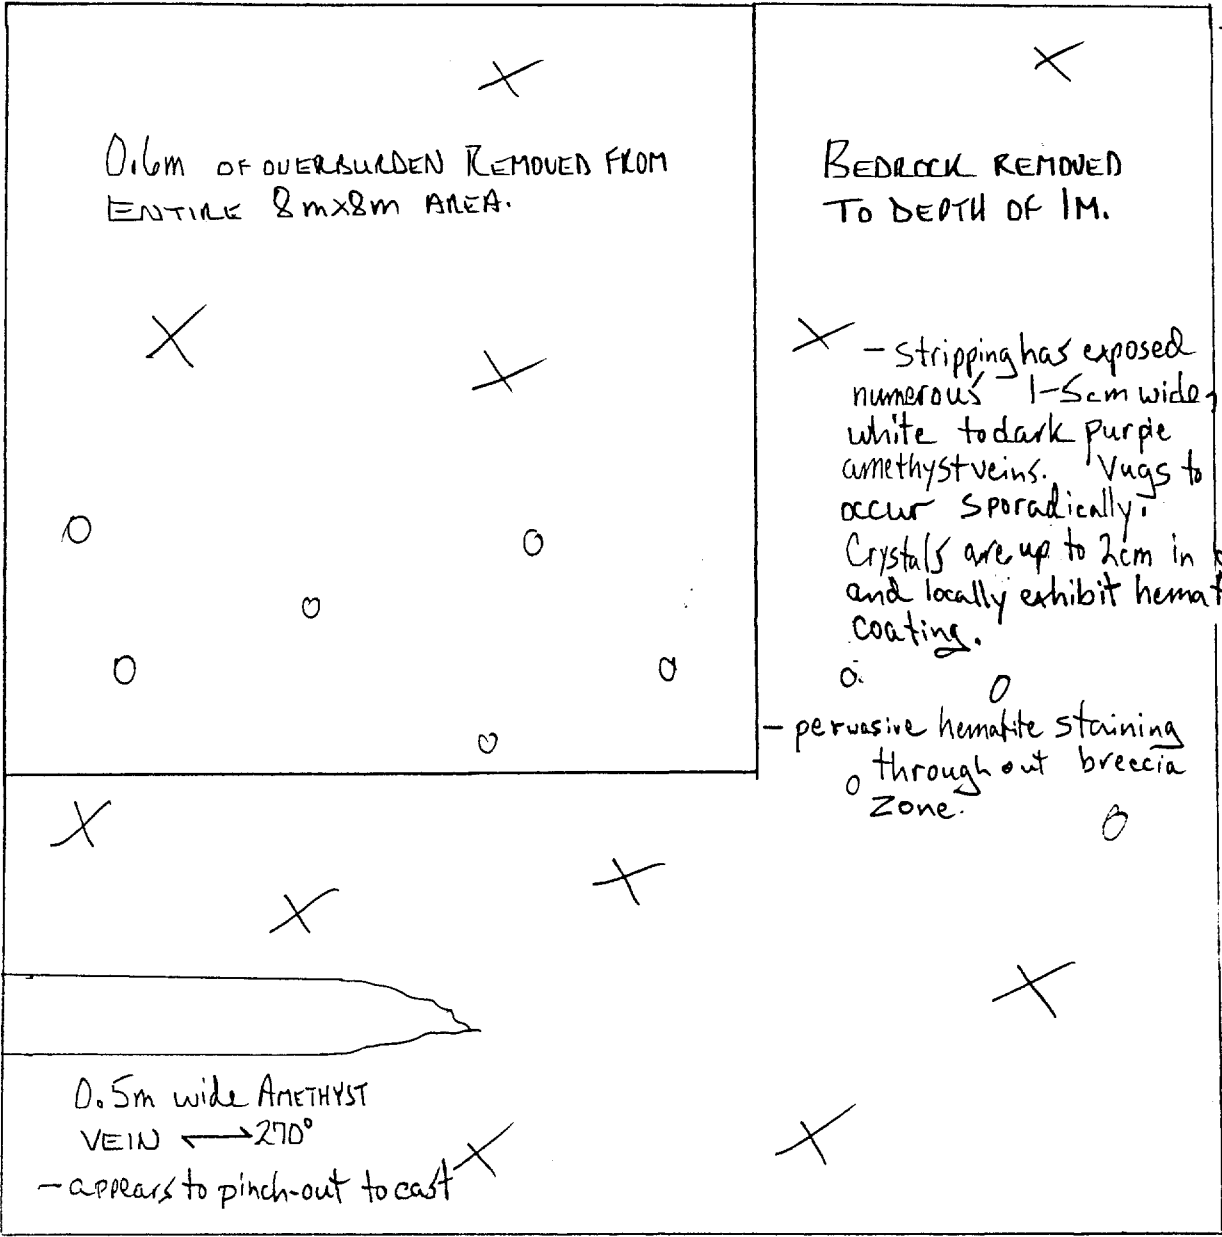 0.6m OF OVERBURDEN REMOVED FROM
ENTIRE 8mx8m AREA.
BEDROCK REMOVED
TO DEPTH OF 1M.
- stripping has exposed
numerous 1-5cm wide,
white to dark purple
amethyst veins. Vugs to
occur sporadically.
Crystals are up to 2cm in
and locally exhibit hemat
coating.
- pervasive hematite staining
throughout breccia
zone.
0.5m wide AMETHYST
VEIN ⟷ 270°
- appears to pinch-out to east